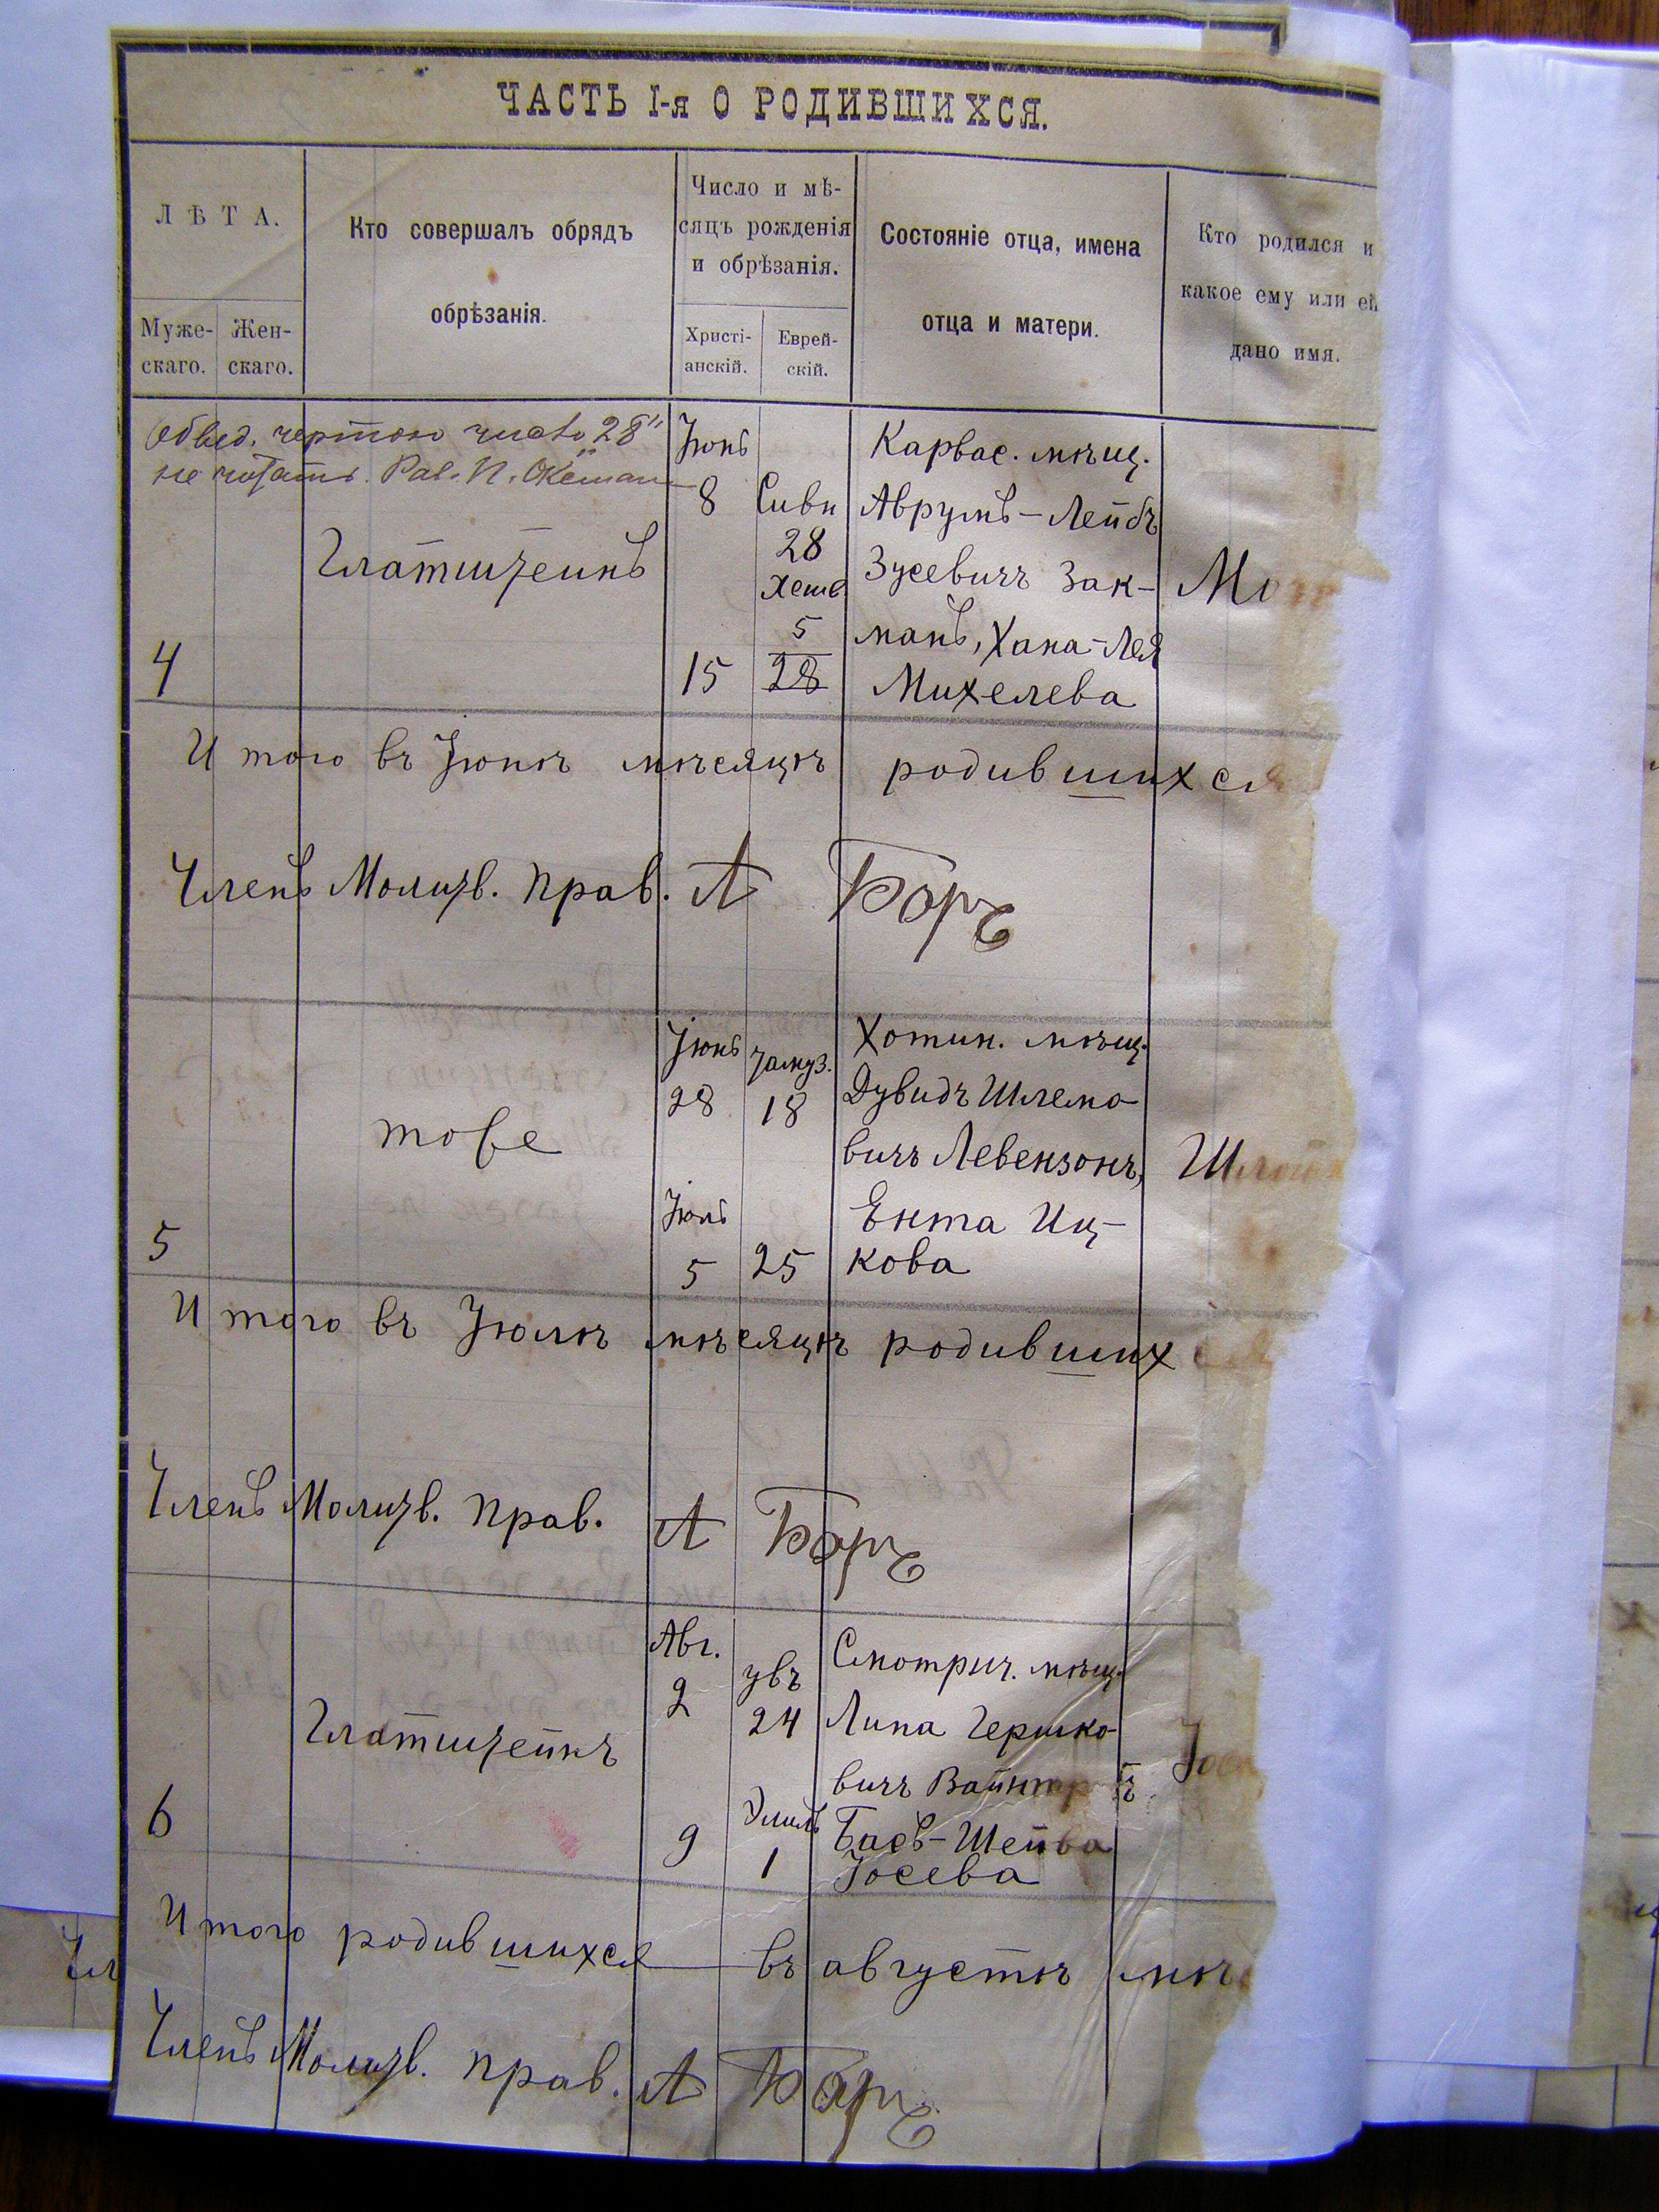 ЧАСТЬ I-я О РОДИВШИХСЯ.
ЛѢТА.
Муже-
скаго.
Жен-
скаго.
Кто совершалъ обрядъ
обрѣзанія.
Число и мѣ-
сяцъ рожденія
и обрѣзанія.
Христі-
анскій.
Еврей-
скій.
Состояніе отца, имена
отца и матери.
Кто родился и
какое ему или ей
дано имя.
Обвед. чертою число 28"
не читать. Рав. И.
4
Глатштейнъ
Іюнь
8
15
Сивн
28
5
28
Карвас. мѣщ.
Аврумъ-Лейбъ
Зусевичъ Зак-
манъ, Хана-Лея
Михелева
Итого въ Іюнѣ мѣсяцѣ родившихся
Членъ Молитв. Прав. А Боръ
5
тоже
Іюнь
28
Іюль
5
Тамуз.
18
25
Хотин. мѣщ.
Дувидъ Шлемо-
вичъ Левензонъ,
Ента Иц-
кова
Итого въ Іюлѣ мѣсяцѣ родившихся
Членъ Молитв. Прав. А Боръ
6
Глатштейнъ
Авг.
2
9
увъ
24
Элилъ
1
Смотрич. мѣщ.
Липа Гершко-
вичъ
Бась-Шейва
Іосева
Итого родившихся въ августѣ
Членъ Молитв. Прав. А Боръ